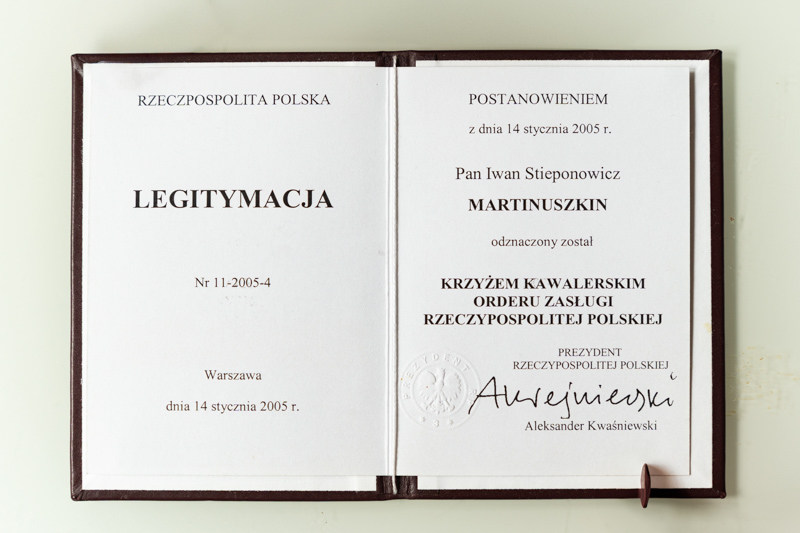 RZECZPOSPOLITA POLSKA
LEGITYMACJA
Nr 11-2005-4
Warszawa
dnia 14 stycznia 2005 r.
POSTANOWIENIEM
z dnia 14 stycznia 2005 r.
Pan Iwan Stieponowicz
MARTINUSZKIN
odznaczony został
KRZYŻEM KAWALERSKIM
ORDERU ZASŁUGI
RZECZYPOSPOLITEJ POLSKIEJ
PREZYDENT
RZECZYPOSPOLITEJ POLSKIEJ
Aleksander Kwaśniewski